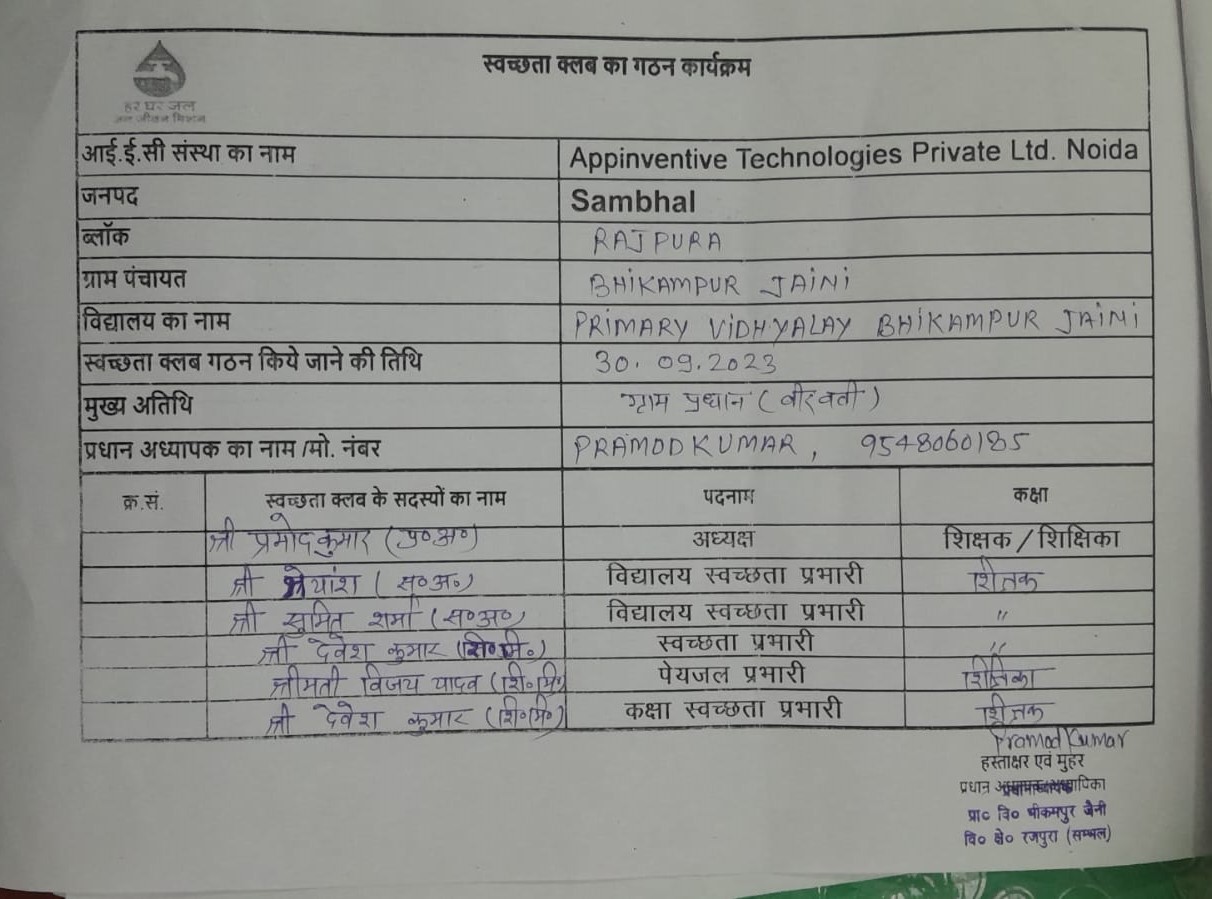 स्वच्छता क्लब का गठन कार्यक्रम
हर घर जल
जल जीवन मिशन
आई.ई.सी संस्था का नाम Appinventive Technologies Private Ltd. Noida
जनपद Sambhal
ब्लॉक RAJPURA
ग्राम पंचायत BHIKAMPUR JAINI
विद्यालय का नाम PRIMARY VIDHYALAY BHIKAMPUR JAINI
स्वच्छता क्लब गठन किये जाने की तिथि 30.09.2023
मुख्य अतिथि ग्राम प्रधान (वीरवती)
प्रधान अध्यापक का नाम /मो. नंबर PRAMOD KUMAR, 9548060185
क्र.सं. स्वच्छता क्लब के सदस्यों का नाम पदनाम कक्षा
श्री प्रमोद कुमार (प्र०अ०) अध्यक्ष शिक्षक / शिक्षिका
श्री श्रेयांश (स०अ०) विद्यालय स्वच्छता प्रभारी शिक्षक
श्री सुमित शर्मा (स०अ०) विद्यालय स्वच्छता प्रभारी "
श्री देवेश कुमार (शि०मि०) स्वच्छता प्रभारी "
श्रीमती विजय यादव (शि०मि०) पेयजल प्रभारी शिक्षिका
श्री देवेश कुमार (शि०मि०) कक्षा स्वच्छता प्रभारी शिक्षक
Pramod Kumar
हस्ताक्षर एवं मुहर
प्रधान
प्रा० वि० भीकमपुर जैनी
वि० क्षे० रजपुरा (सम्भल)